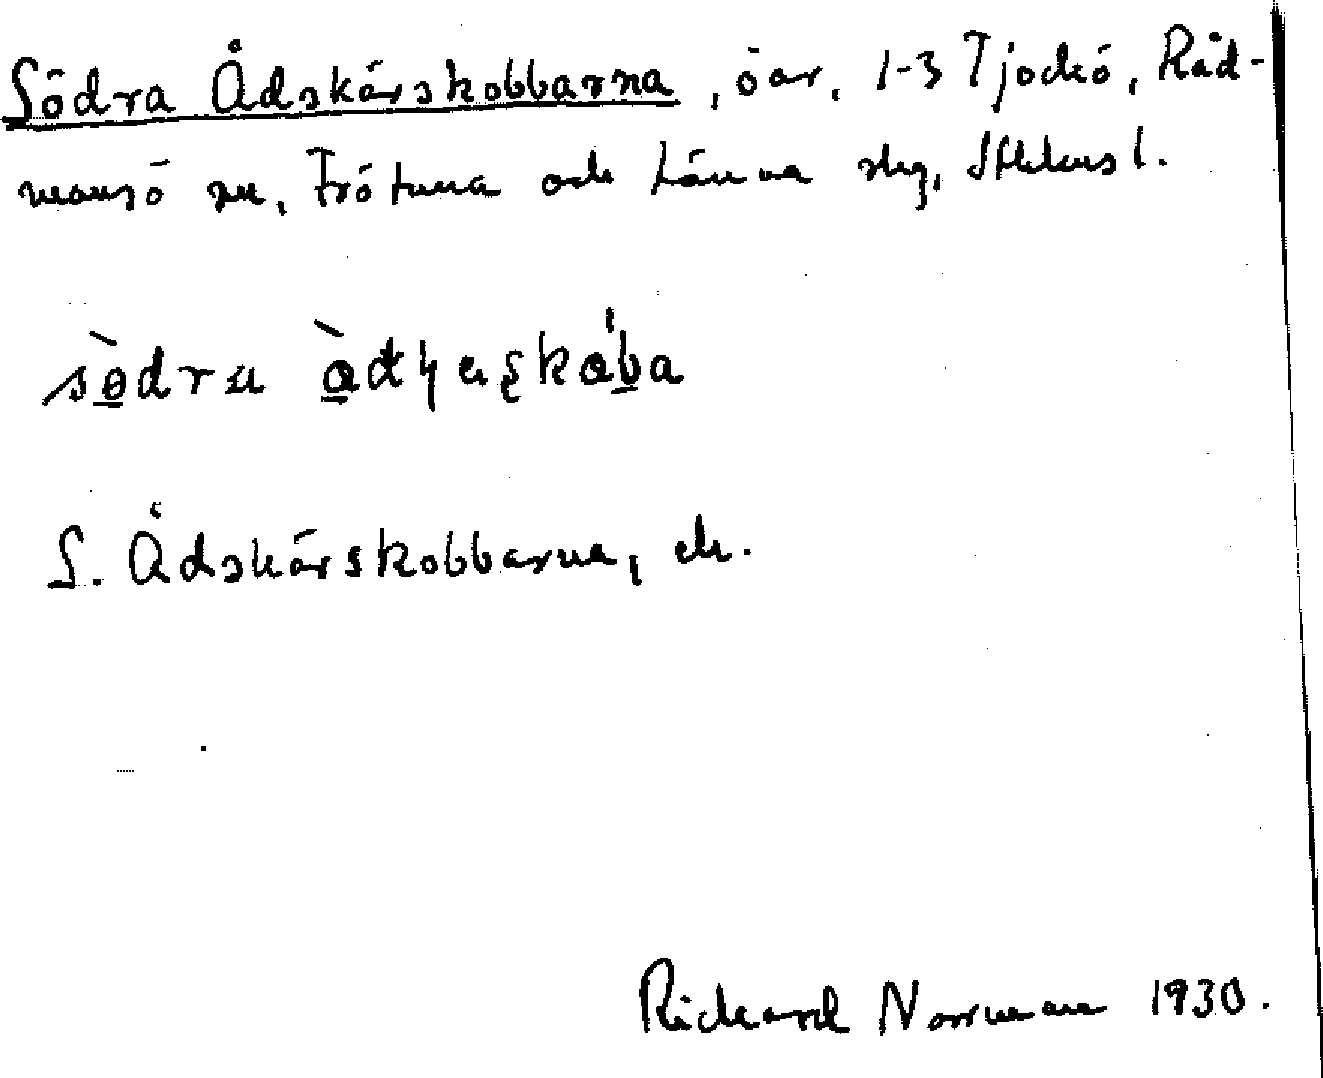 Södra Ådskärskobbarna, öar, 1-3 Tjockö, Råd-
mansö sn, Frötuna och Länna skg, Sthlms l.
södra
S. Ådskärskobbarna, ek.
Rickard Norrman 1930.